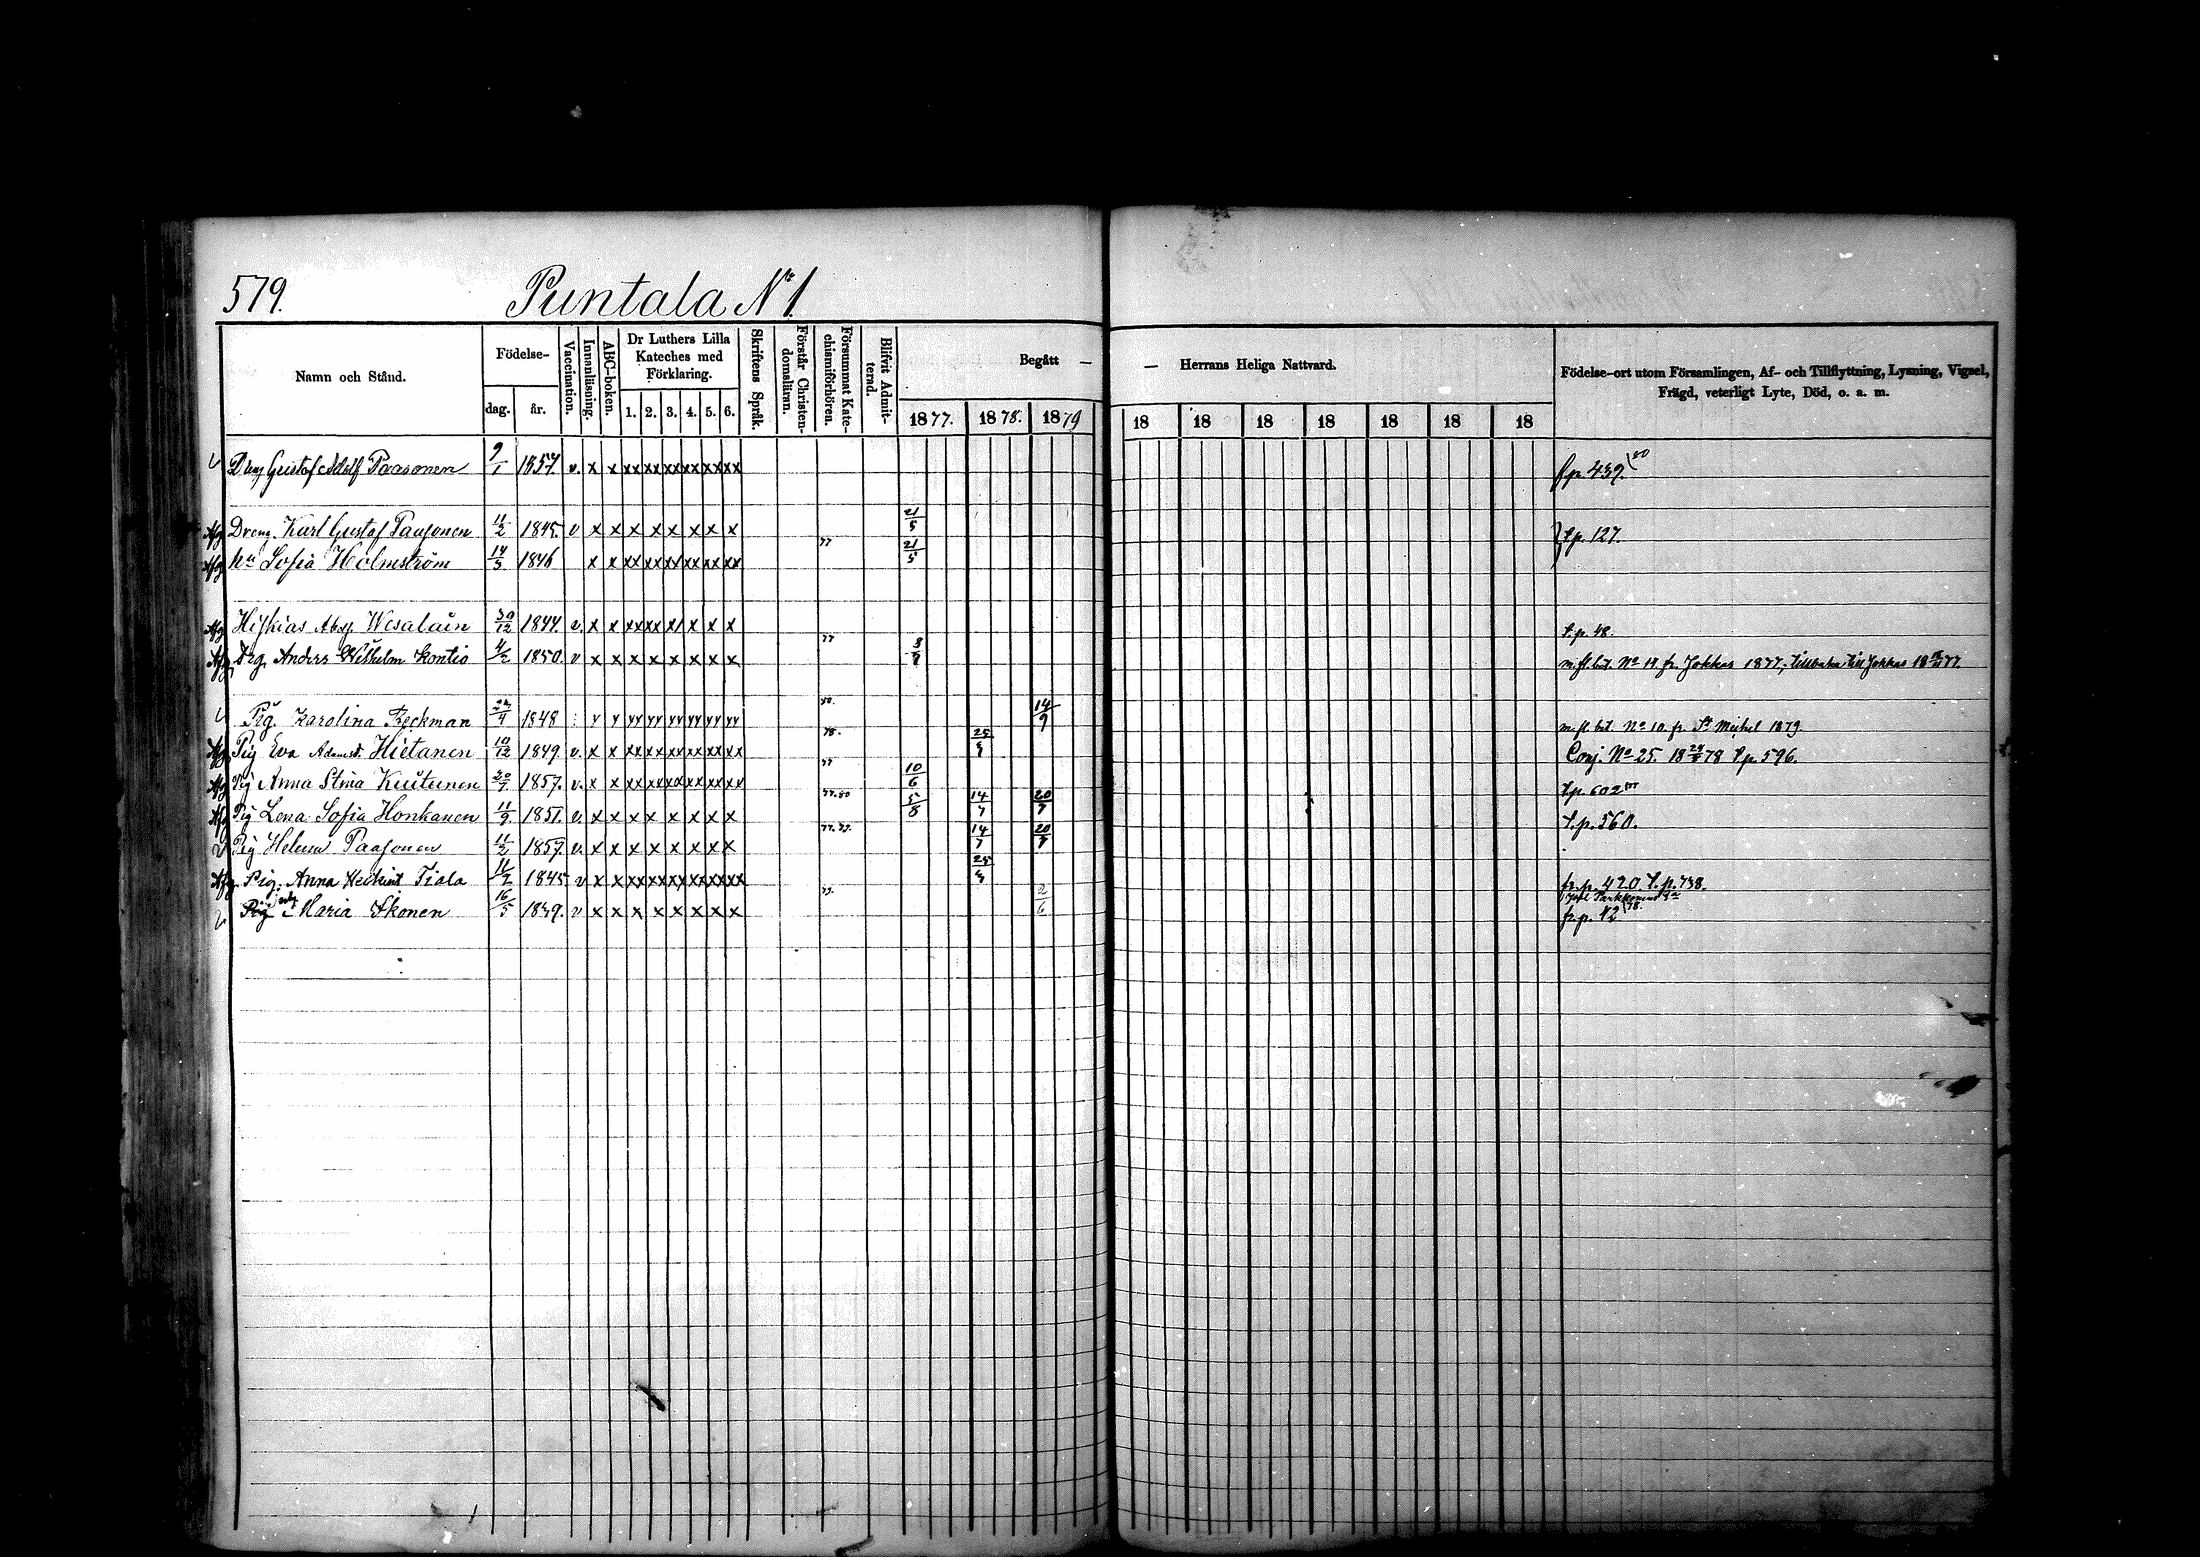 579. Puntala No 1.
Namn och Stånd. Födelse- dag. år. Vaccination. Innanläsning. ABC-boken. Dr Luthers Lilla Kateches med Förklaring. 1. 2. 3. 4. 5. 6. Skriftens Språk. Förstår Christendomsläran. Försummat Katechismiförhören. Blifvit Admitterad. Begått — — Herrans Heliga Nattvard. 1877. 1878. 1879 18 18 18 18 18 18 18 Födelse-ort utom Församlingen, Af- och Tillflyttning, Lysning, Vigsel, Frägd, veterligt Lyte, Död, o. a. m.
Dreng Gustaf Adolf Paasonen 9/1 1857. v. x x xx xx xx xx xx xx fr p. 439.
Afg Dreng. Karl Gustaf Paasonen 11/2 1845. v x x x x x x x x 21/5 t.p. 127.
Afg hu Sofia Holmström 14/3 1846 x x xx xx xx xx xx xx 77 21/5
Afg Hiskias Wesalain 30/12 1844. v. x x xx xx x x x x t.p. 48.
Afg Drg. Anders Wilhelm Kontio 4/2 1850. v x x x x x x x x 77 m. fl. bet. No 14 fr. Jokkas 1877, till Jokkas
Pig. Karolina Beckman 1848 80. 14/9 m. fl. bet. No 10. fr. St Michel 1879.
Afg Pig Eva Adamsd. Hietanen 10/12 1849. v. x x xx xx xx xx xx xx 78. 25 Conj. No 25. 78 t.p. 596.
Afg Pig Anna Stina Kuitunen 1857. v. x x xx xx xx xx xx xx 77 10/6 t.p. 602
Afg Pig Lena Sofia Honkanen 11/9 1851. v. x x x x x x x x 77.80 5/8 14/7 20/7 t.p. 560.
Pig Helena Paasonen 11/2 1857. v. x x x x x x x x 14/7 20/7
Afg Pig. Anna Tiala 1845 v x x xx xx xx xx xx xx 25 fr. p. 420. t. p. 738.
Pig Maria Ikonen 16/5 1839. v x x x x x x x x 2/6 fr. p. 12